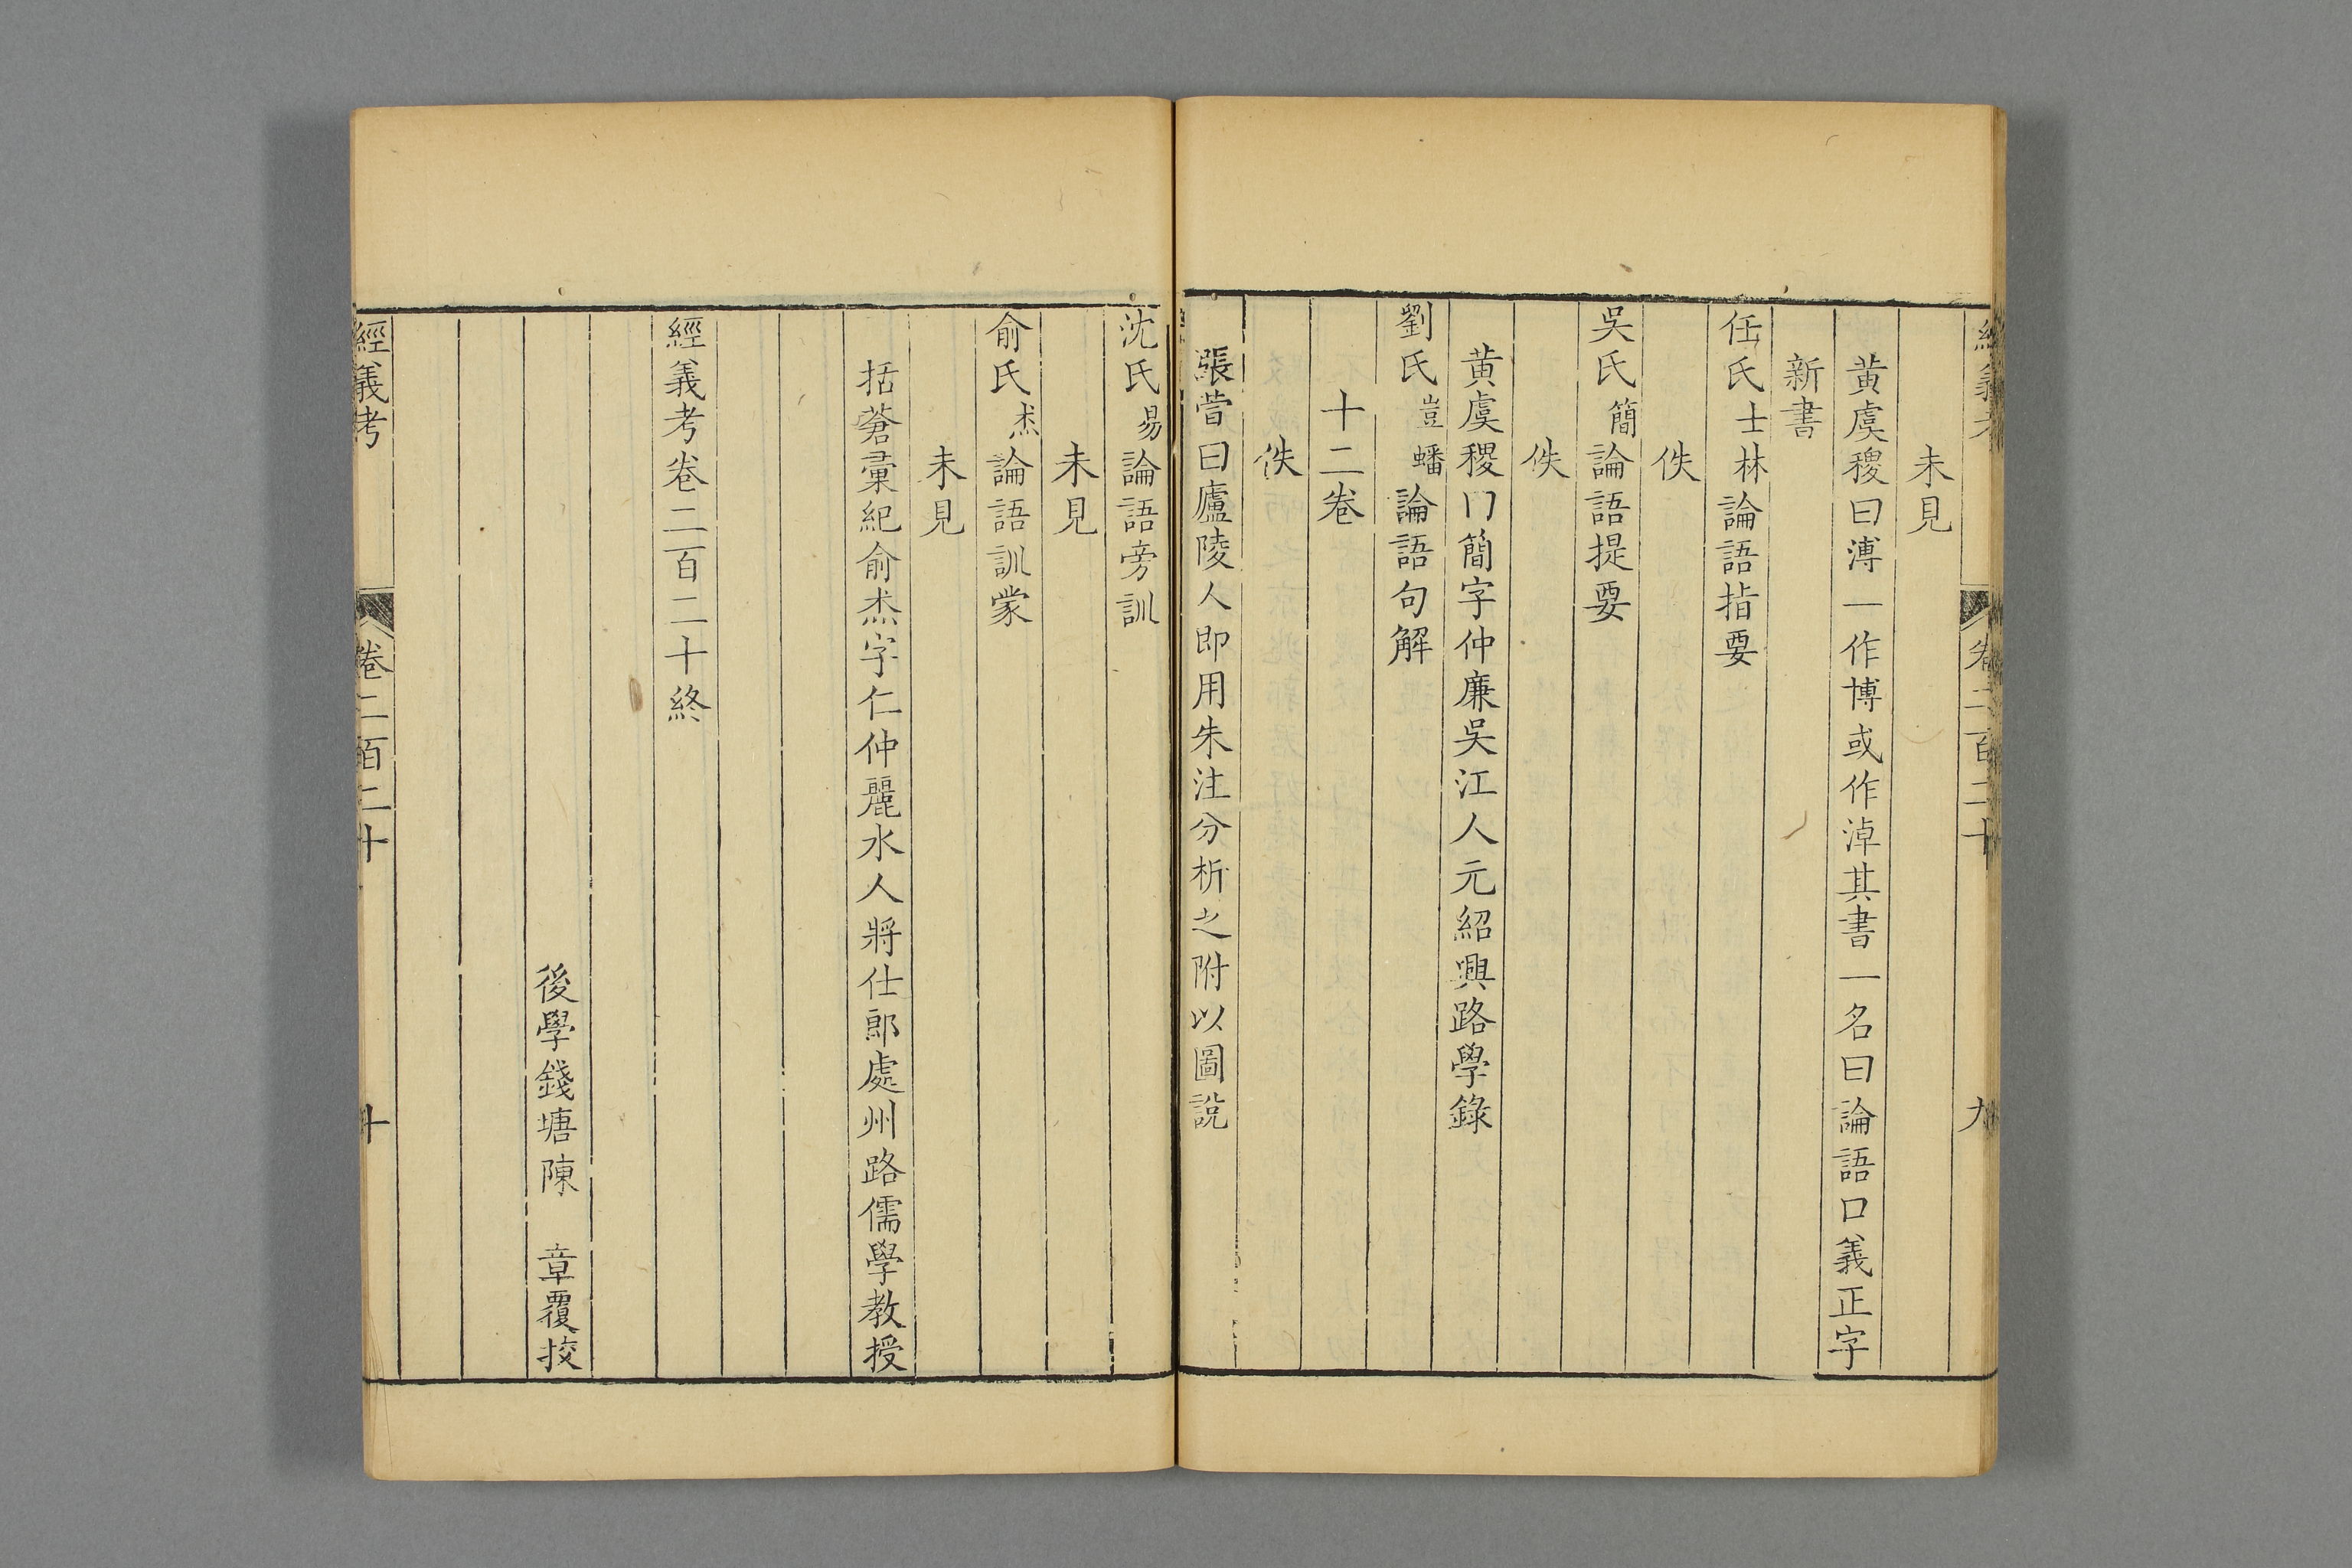 未見
黄虞稷曰溥一作博或作淖其書一名曰論語口義正字
新書
任氏士林論語指要
佚
吳氏簡論語提要
佚
黄虞稷曰簡字仲廉吳江人元紹興路學錄
劉氏豈蟠論語句解
十二卷
佚
張萱曰廬陵人即用朱注分析之附以圖說
沈氏易論語旁訓
未見
俞氏杰論語訓蒙
未見
括蒼彙紀俞杰字仁仲麗水人將仕郎處州路儒學教授
經義考卷二百二十終
後學錢塘陳 章覆挍
經義考 卷二百二十 十